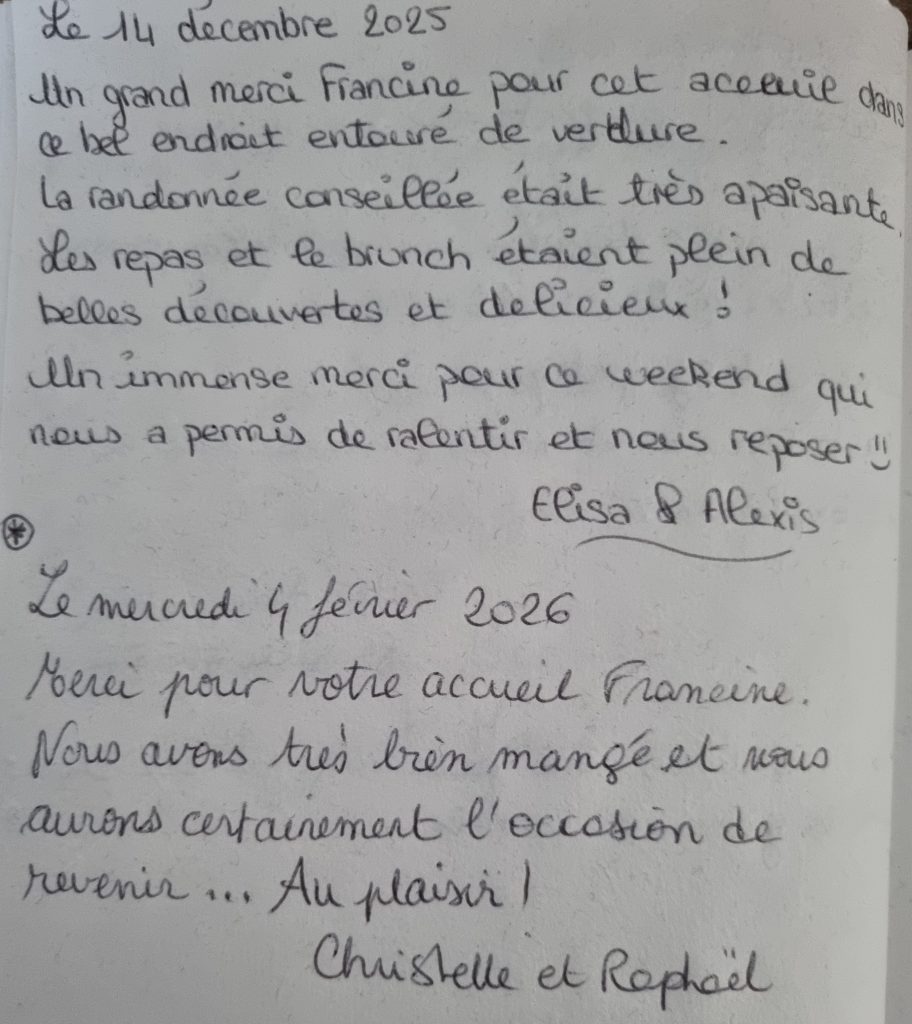 Le 14 décembre 2025
Un grand merci Francine pour cet acceuil dans
ce bel endroit entouré de verdure.
La randonnée conseillée était très apaisante.
Les repas et le brunch étaient plein de
belles découvertes et delicieux !
Un immense merci pour ce weekend qui
nous a permis de ralentir et nous reposer !!
Elisa & Alexis
Le mercredi 4 février 2026
Merci pour votre accueil Francine.
Nous avons très bien mangé et nous
aurons certainement l'occasion de
revenir ... Au plaisir !
Christelle et Raphaël